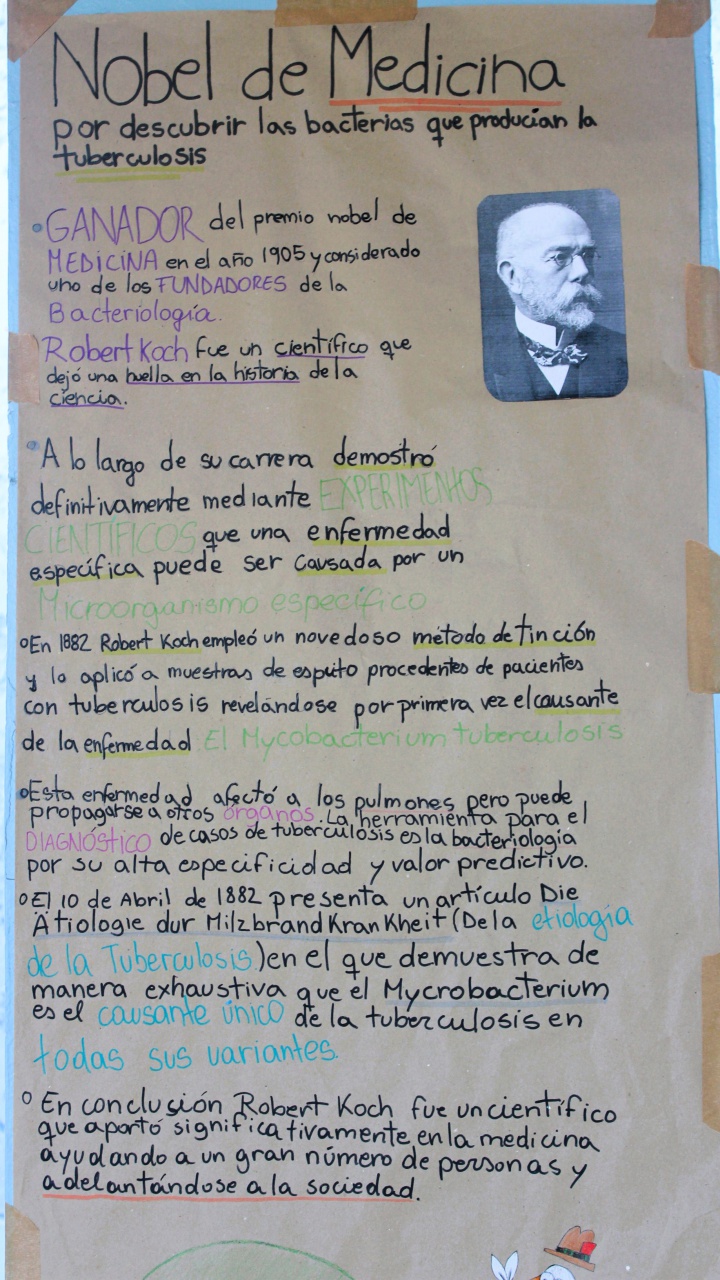 Nobel de Medicina
por descubrir las bacterias que producian la
tuberculosis
GANADOR del premio nobel de
MEDICINA en el año 1905 y considerado
uno de los FUNDADORES de la
Bacteriología.
Robert Koch fue un científico que
dejó una huella en la historia de la
ciencia.
A lo largo de su carrera demostró
definitivamente mediante EXPERIMENTOS
CIENTÍFICOS que una enfermedad
específica puede ser causada por un
Microorganismo específico
En 1882 Robert Koch empleó un novedoso método de tinción
y lo aplicó a muestras de esputo procedentes de pacientes
con tuberculosis revelándose por primera vez el causante
de la enfermedad El Mycobacterium tuberculosis
Esta enfermedad afectó a los pulmones pero puede
propagarse a otros órganos. La herramienta para el
DIAGNÓSTICO de casos de tuberculosis es la bacteriología
por su alta especificidad y valor predictivo.
El 10 de Abril de 1882 presenta un artículo Die
Ätiologie dur Milzbrand KranKheit (De la etiología
de la Tuberculosis) en el que demuestra de
manera exhaustiva que el Mycrobacterium
es el causante único de la tuberculosis en
todas sus variantes.
En conclusión Robert Koch fue un científico
que aportó significativamente en la medicina
ayudando a un gran número de personas y
adelantándose a la sociedad.